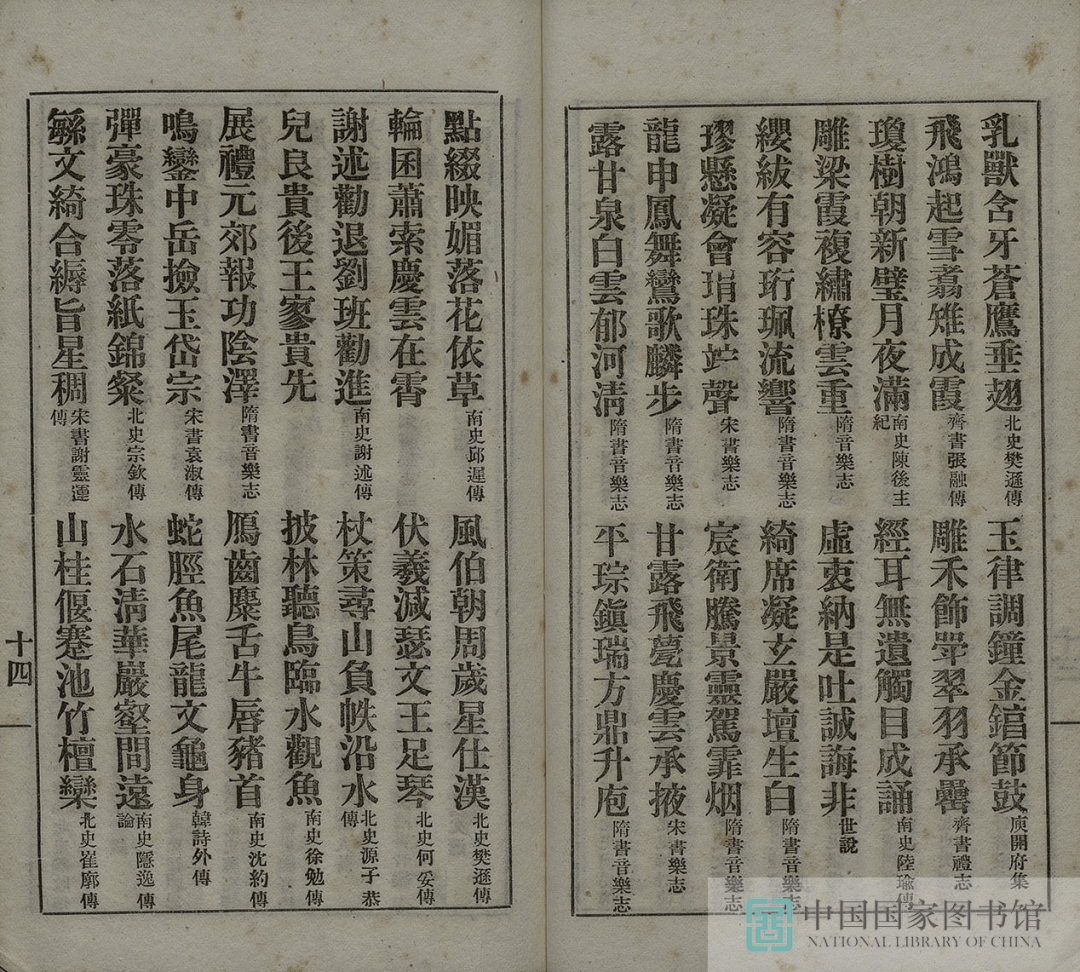 乳獸含牙蒼鷹垂翅北史樊遜傳 玉律調鐘金錧節鼓庾開府集
飛鴻起雪翥雉成霞齊書張融傳 雕禾飾斝翠羽承罍齊書禮志
瓊樹朝新璧月夜滿南史陳後主紀 經耳無遺觸目成誦南史陸瑜傳
雕梁霞複繡橑雲重隋音樂志 虛衷納是吐誠誨非世說
纓紱有容珩珮流響隋書音樂志 綺席凝玄嚴壇生白隋書音樂志
璆懸凝會珠聲宋書樂志 宸衛騰景靈駕霏烟隋書音樂志
龍申鳳舞鸞歌麟步隋書音樂志 甘露飛甍慶雲承掖宋書樂志
露甘泉白雲郁河清隋書音樂志 平琮鎭瑞方鼎升庖隋書音樂志
點綴映媚落花依草南史邱遲傳 風伯朝周歲星仕漢北史樊遜傳
輪囷蕭索慶雲在霄 伏羲減瑟文王足琴北史何妥傳
謝述勸退劉班勸進南史謝述傳 杖策尋山負帙沿水北史源子恭傳
兒良貴後王寥貴先 披林聽鳥臨水觀魚南史徐勉傳
展禮元郊報功陰澤隋書音樂志 鴈齒麋舌牛唇豬首南史沈約傳
鳴鑾中岳撿玉岱宗宋書袁淑傳 蛇脛魚尾龍文龜身韓詩外傳
彈豪珠零落紙錦粲北史宗欽傳 水石清華巖壑間遠南史隱逸傳論
緐文綺合縟旨星稠宋書謝靈運傳 山桂偃蹇池竹檀欒北史崔廓傳
十四
中国国家图书馆
NATIONAL LIBRARY OF CHINA